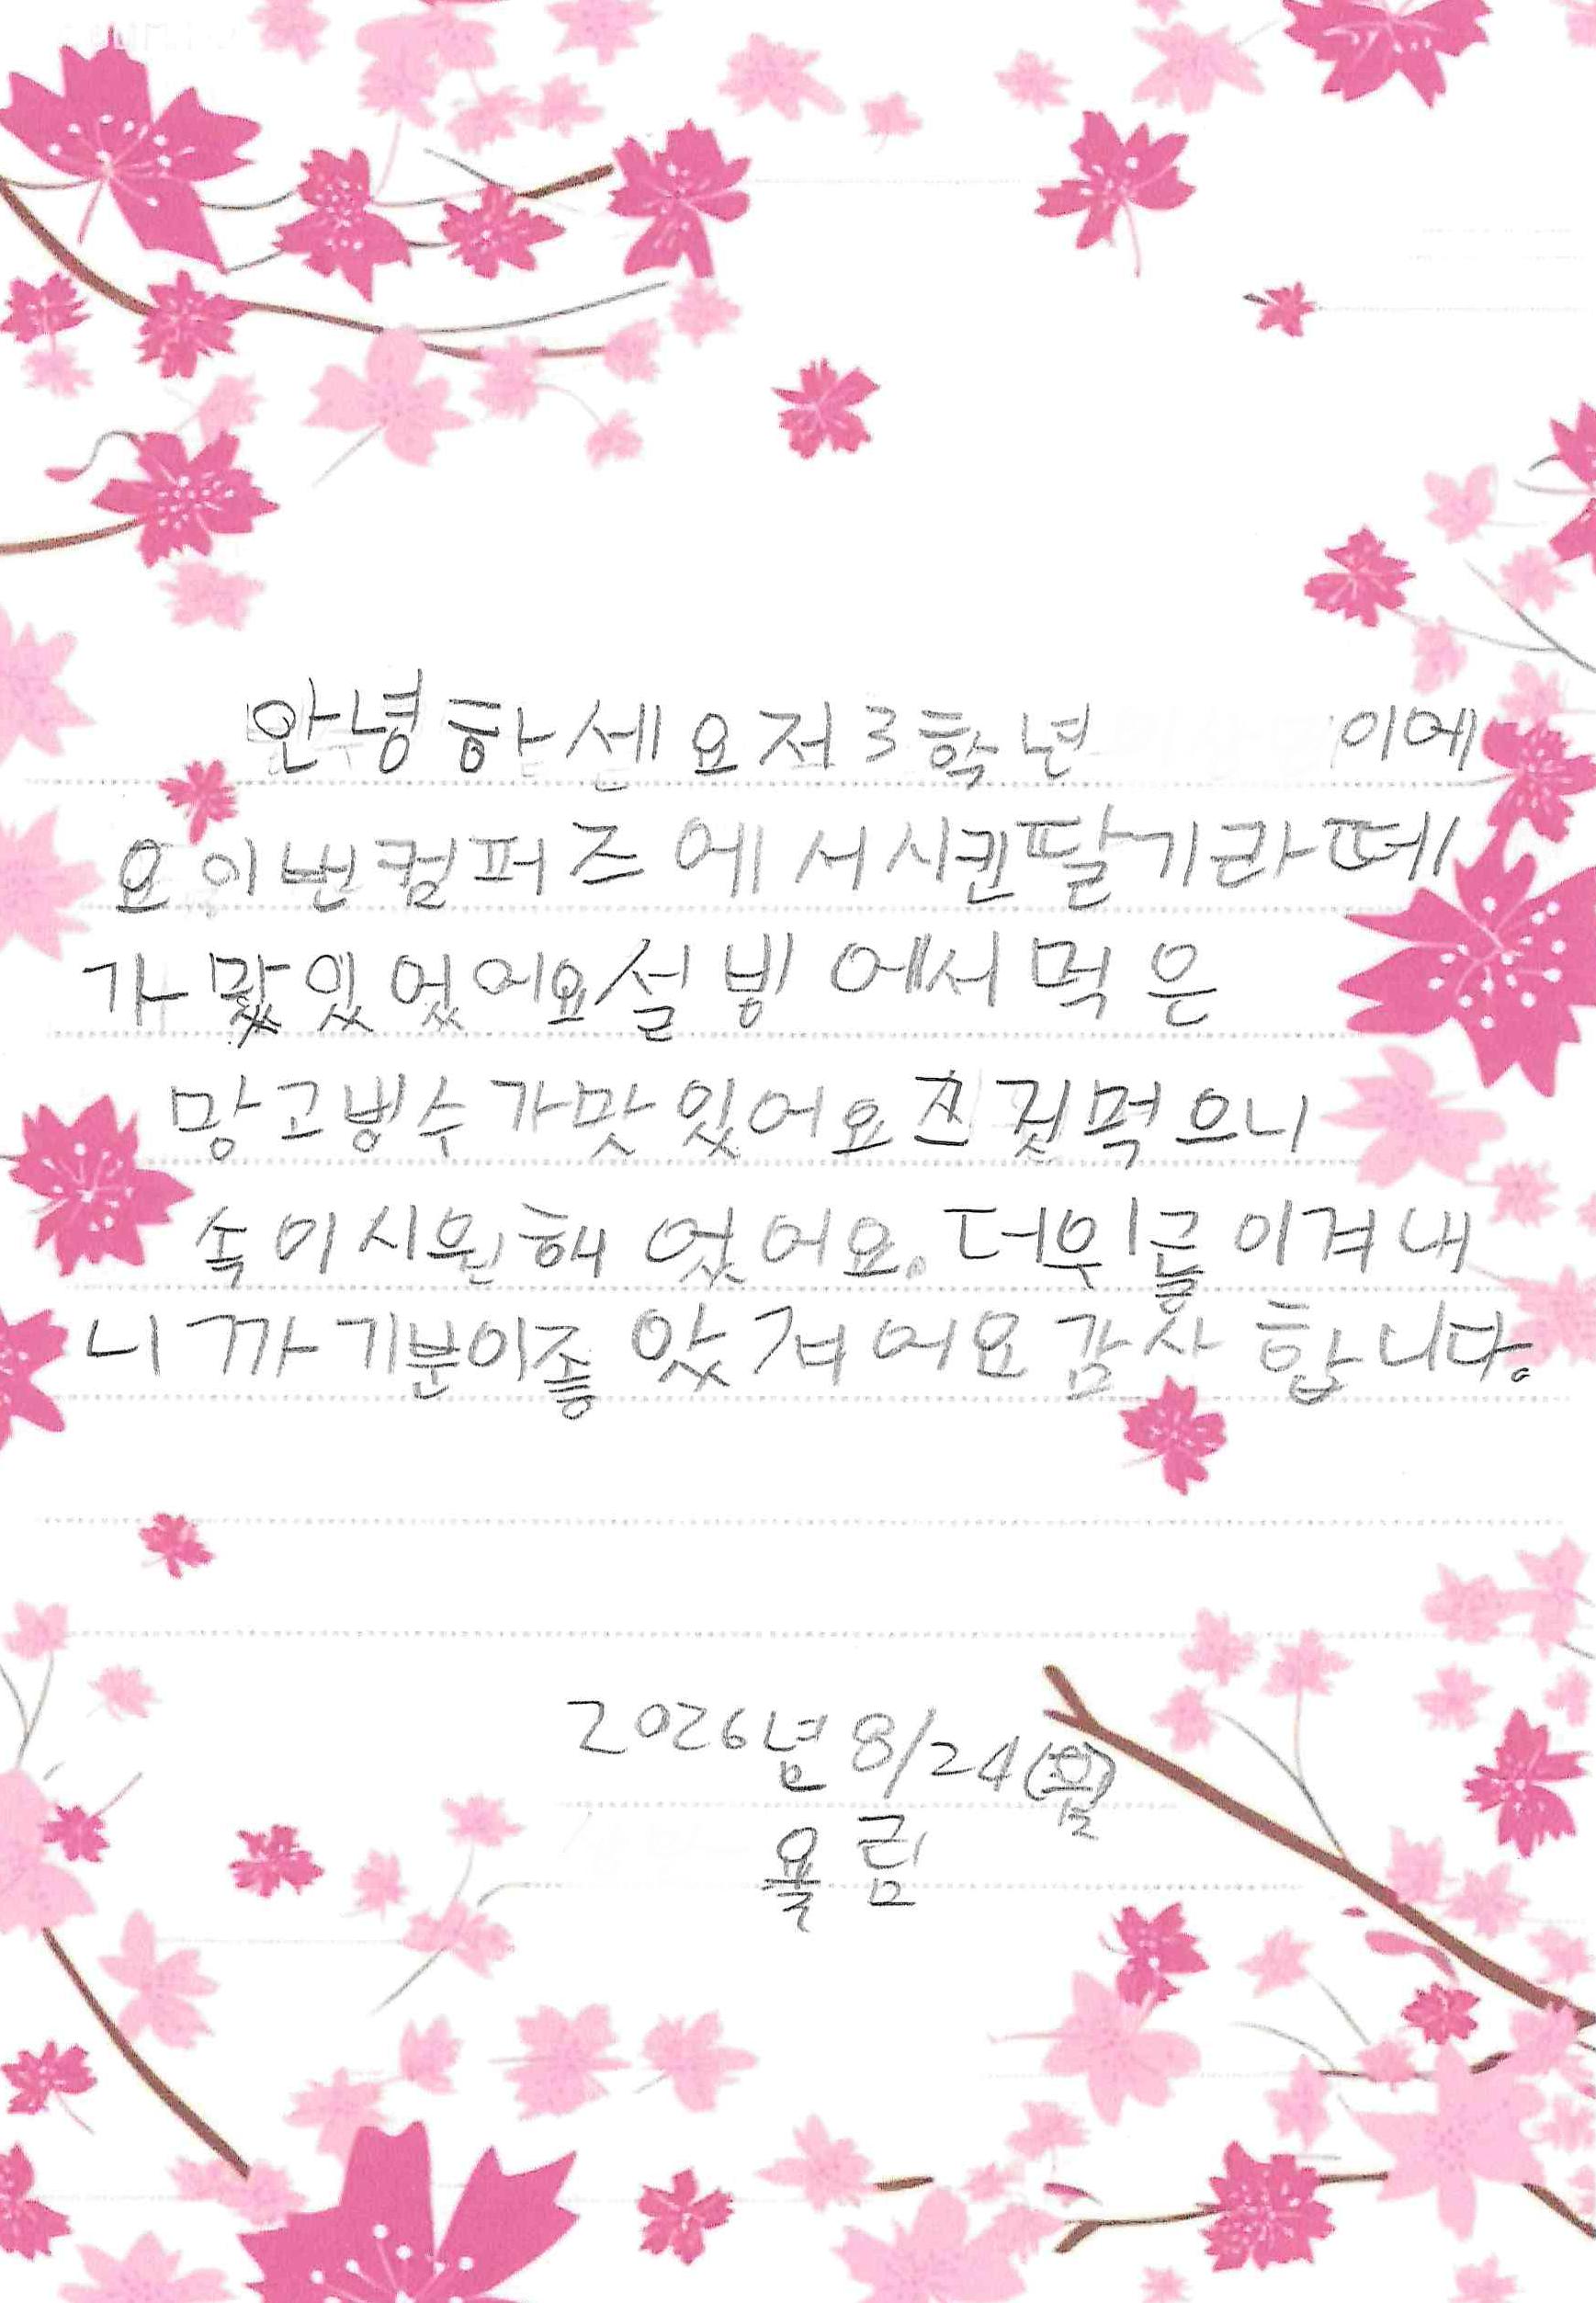 안녕하세요저3학년 이에
요이번컴퍼즈에서시킨딸기라떼
가맜있었어요설빙에서먹은
망고빙수가맛있어요 먹으니
속이시원해었어요.더위를이겨내
니까기분이좋았겨어요감사합니다.
2026년8/24(월)
올림